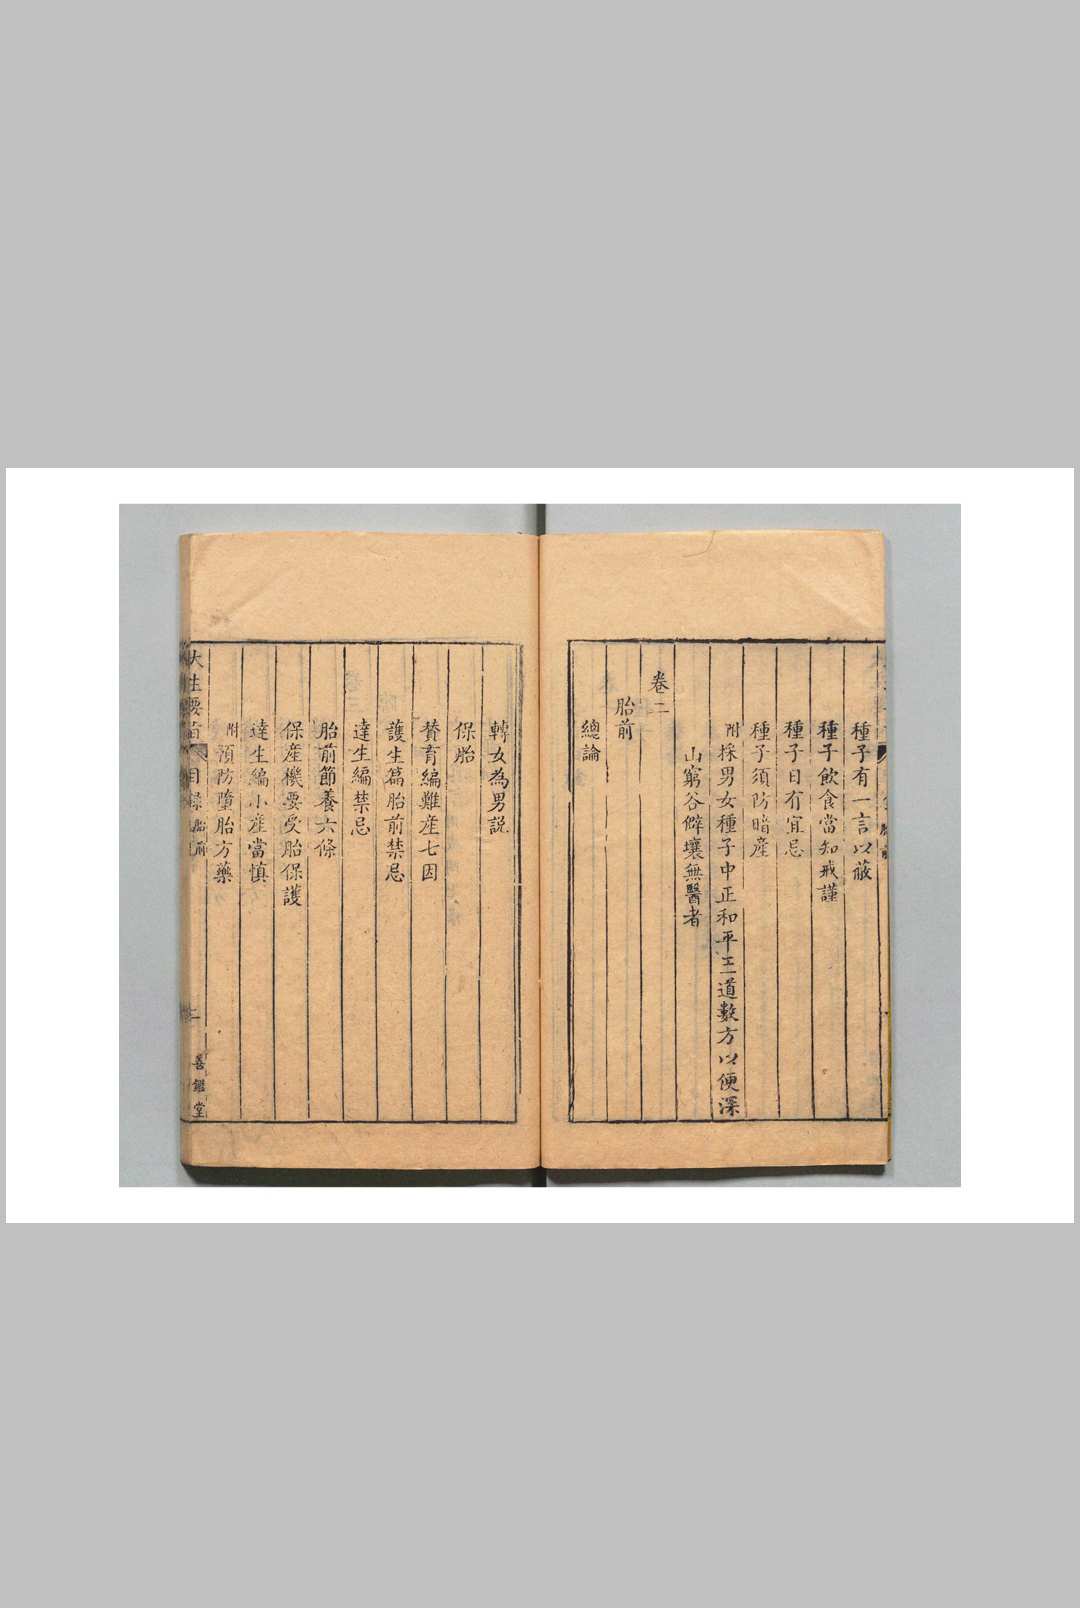 種子有一言以蔽
種子飲食當知戒謹
種子日有宜忌
種子須防暗產
附採男女種子中正和平王道數方以便深
山窮谷僻壤無醫者
卷二
胎前
總論
轉女為男説
保胎
賛育編難產七因
護生篇胎前禁忌
達生編禁忌
胎前節養六條
保產機要受胎保護
達生編小產當慎
附預防墮胎方藥
大生要旨 目錄 胎前 二 善鑑堂